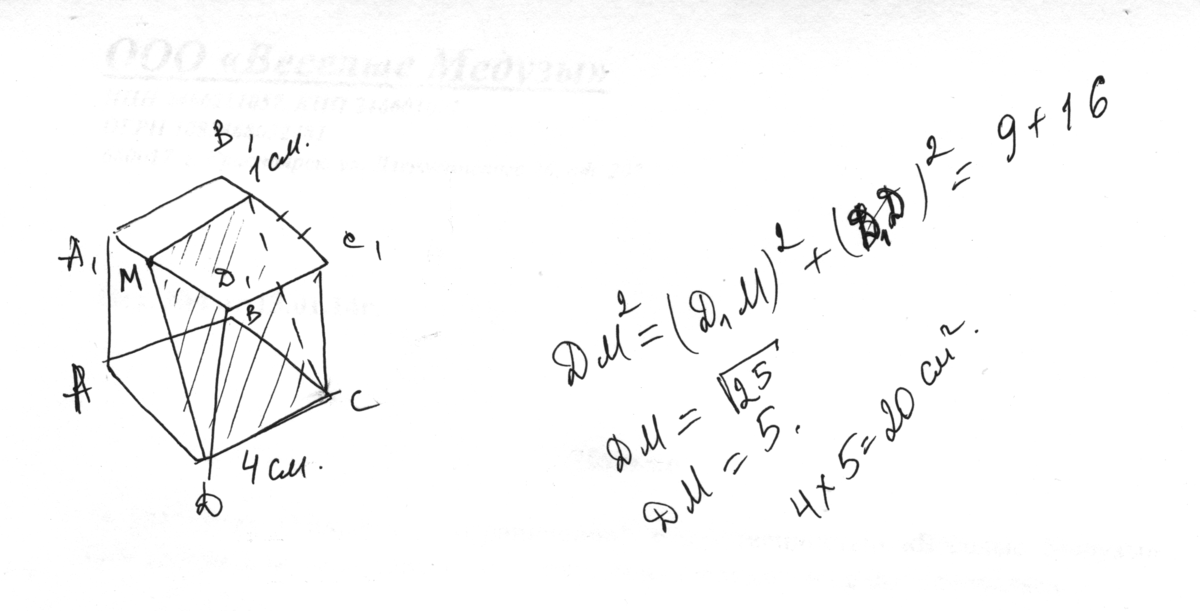 ООО «Веселые Медузы»
B₁
1 см.
A₁
C₁
M
D₁
B
A
C
4 см.
D
DM² = (D₁M)² + (D₁D)² = 9 + 16
DM = √25
DM = 5.
4 × 5 = 20 см².